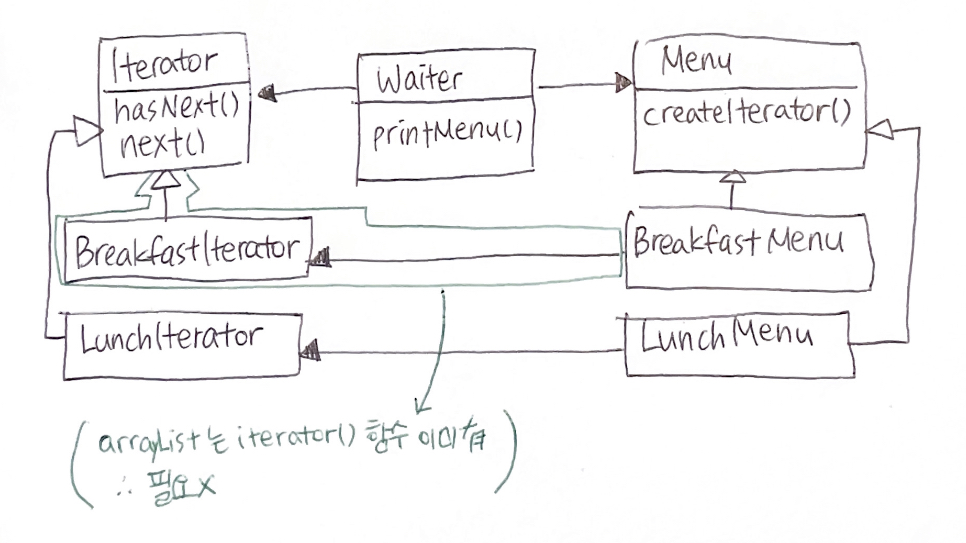 Iterator
hasNext()
next()
Waiter
printMenu()
Menu
createIterator()
BreakfastIterator
BreakfastMenu
LunchIterator
LunchMenu
(arrayList는 iterator() 함수 이미 有
∴ 필요X)